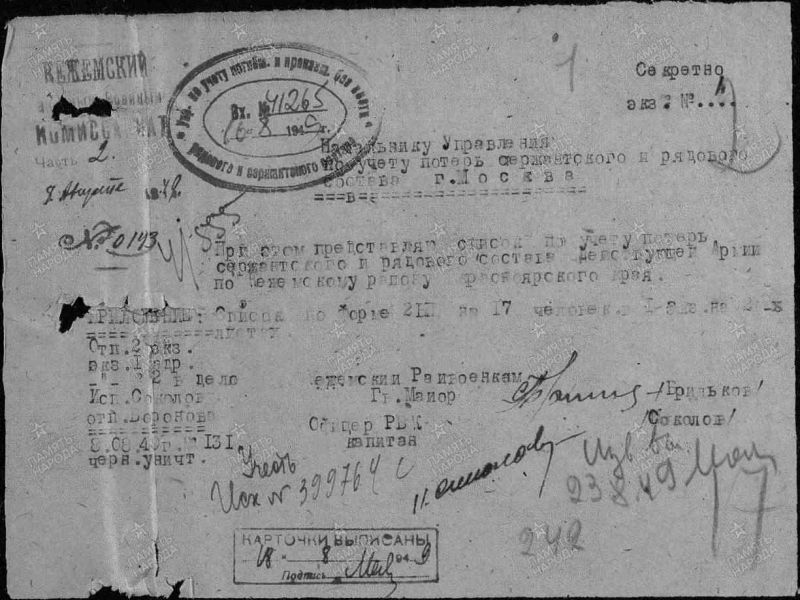 КЕЖЕМСКИЙ
КОМИССАРИАТ
Часть 2.
Упр. по учету погибш. и пропавш. без вести
рядового и сержантского
Вх. № 41265
16 - 8 1949 г.
Секретно
экз. №....
Начальнику Управления
по учету потерь сержантского и рядового
состава г.Москва
№ 0193
При этом представляю список по учету потерь
сержантского и рядового состава Действующей Армии
по Кежемскому району Красноярского края.
ПРИЛОЖЕНИЕ: Список по форме 2 на 17 человек, в 1-экз. на 2-х
листах.
Отп. 2 экз.
экз. 1 адр.
-"- 2 в дело
Исп. Соколов
отп. Воронова
8.08.49г. № 131.
черн. уничт.
Кежемский Райвоенком
Гв. Майор
/Брильков/
Офицер РВК
капитан
/Соколов/
Учесть
Исх № 399764 с
23 8 49
242
КАРТОЧКИ ВЫПИСАНЫ
18 " 8 1949
Подпись